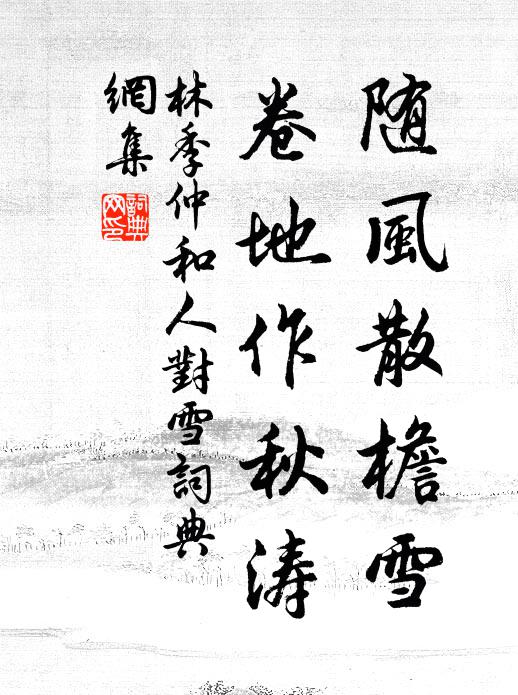 随風散檐雪
卷地作秋涛
林季仲和人對雪詞典
網集
詞典
网印